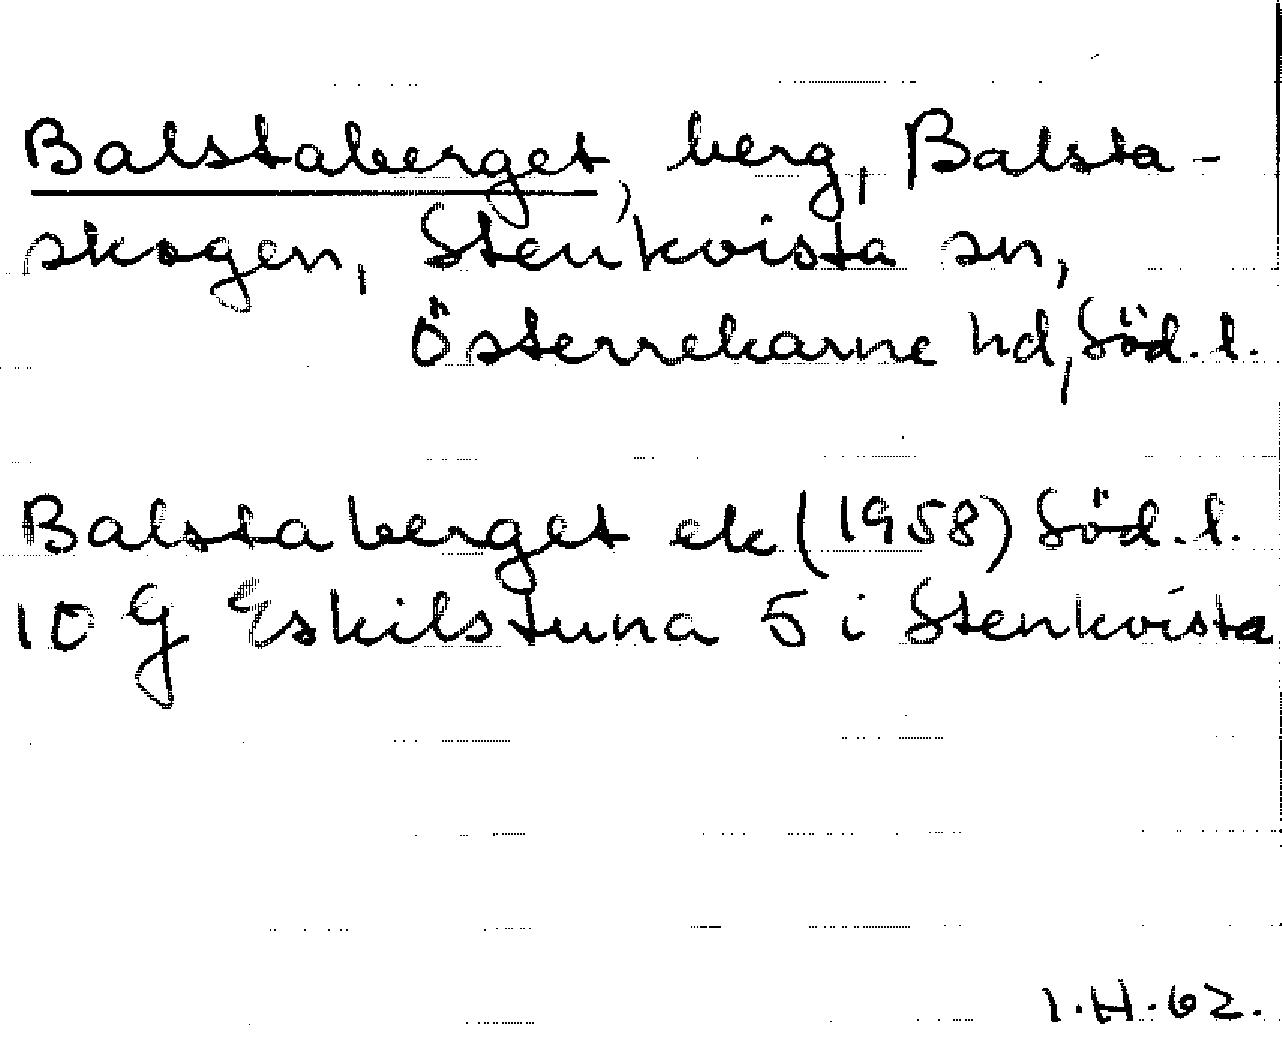 Balstaberget, berg, Balsta-
skogen, Stenkvista sn,
Österrekarne hd, Söd. l.
Balstaberget ek (1958) Söd. l.
10 G Eskilstuna 5 i Stenkvista
I.H.62.